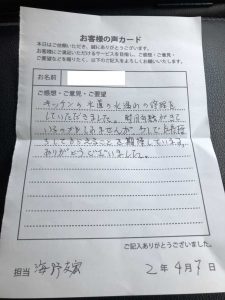 お客様の声カード
本日はご依頼いただき、誠にありがとうございます。
お客様にご満足いただけるサービスを目指し、ご感想・ご意見・
ご要望などを賜りたく、以下のご記入をよろしくお願いいたします。
お名前
ご感想・ご意見・ご要望
キッチンの水道の水漏れの修理を
していただきました。
いるのかもしれませんが、少しでも長持ち
してくれることを期待しています。
ありがとうございました。
ご記入ありがとうございました。
担当 海野
2年4月7日